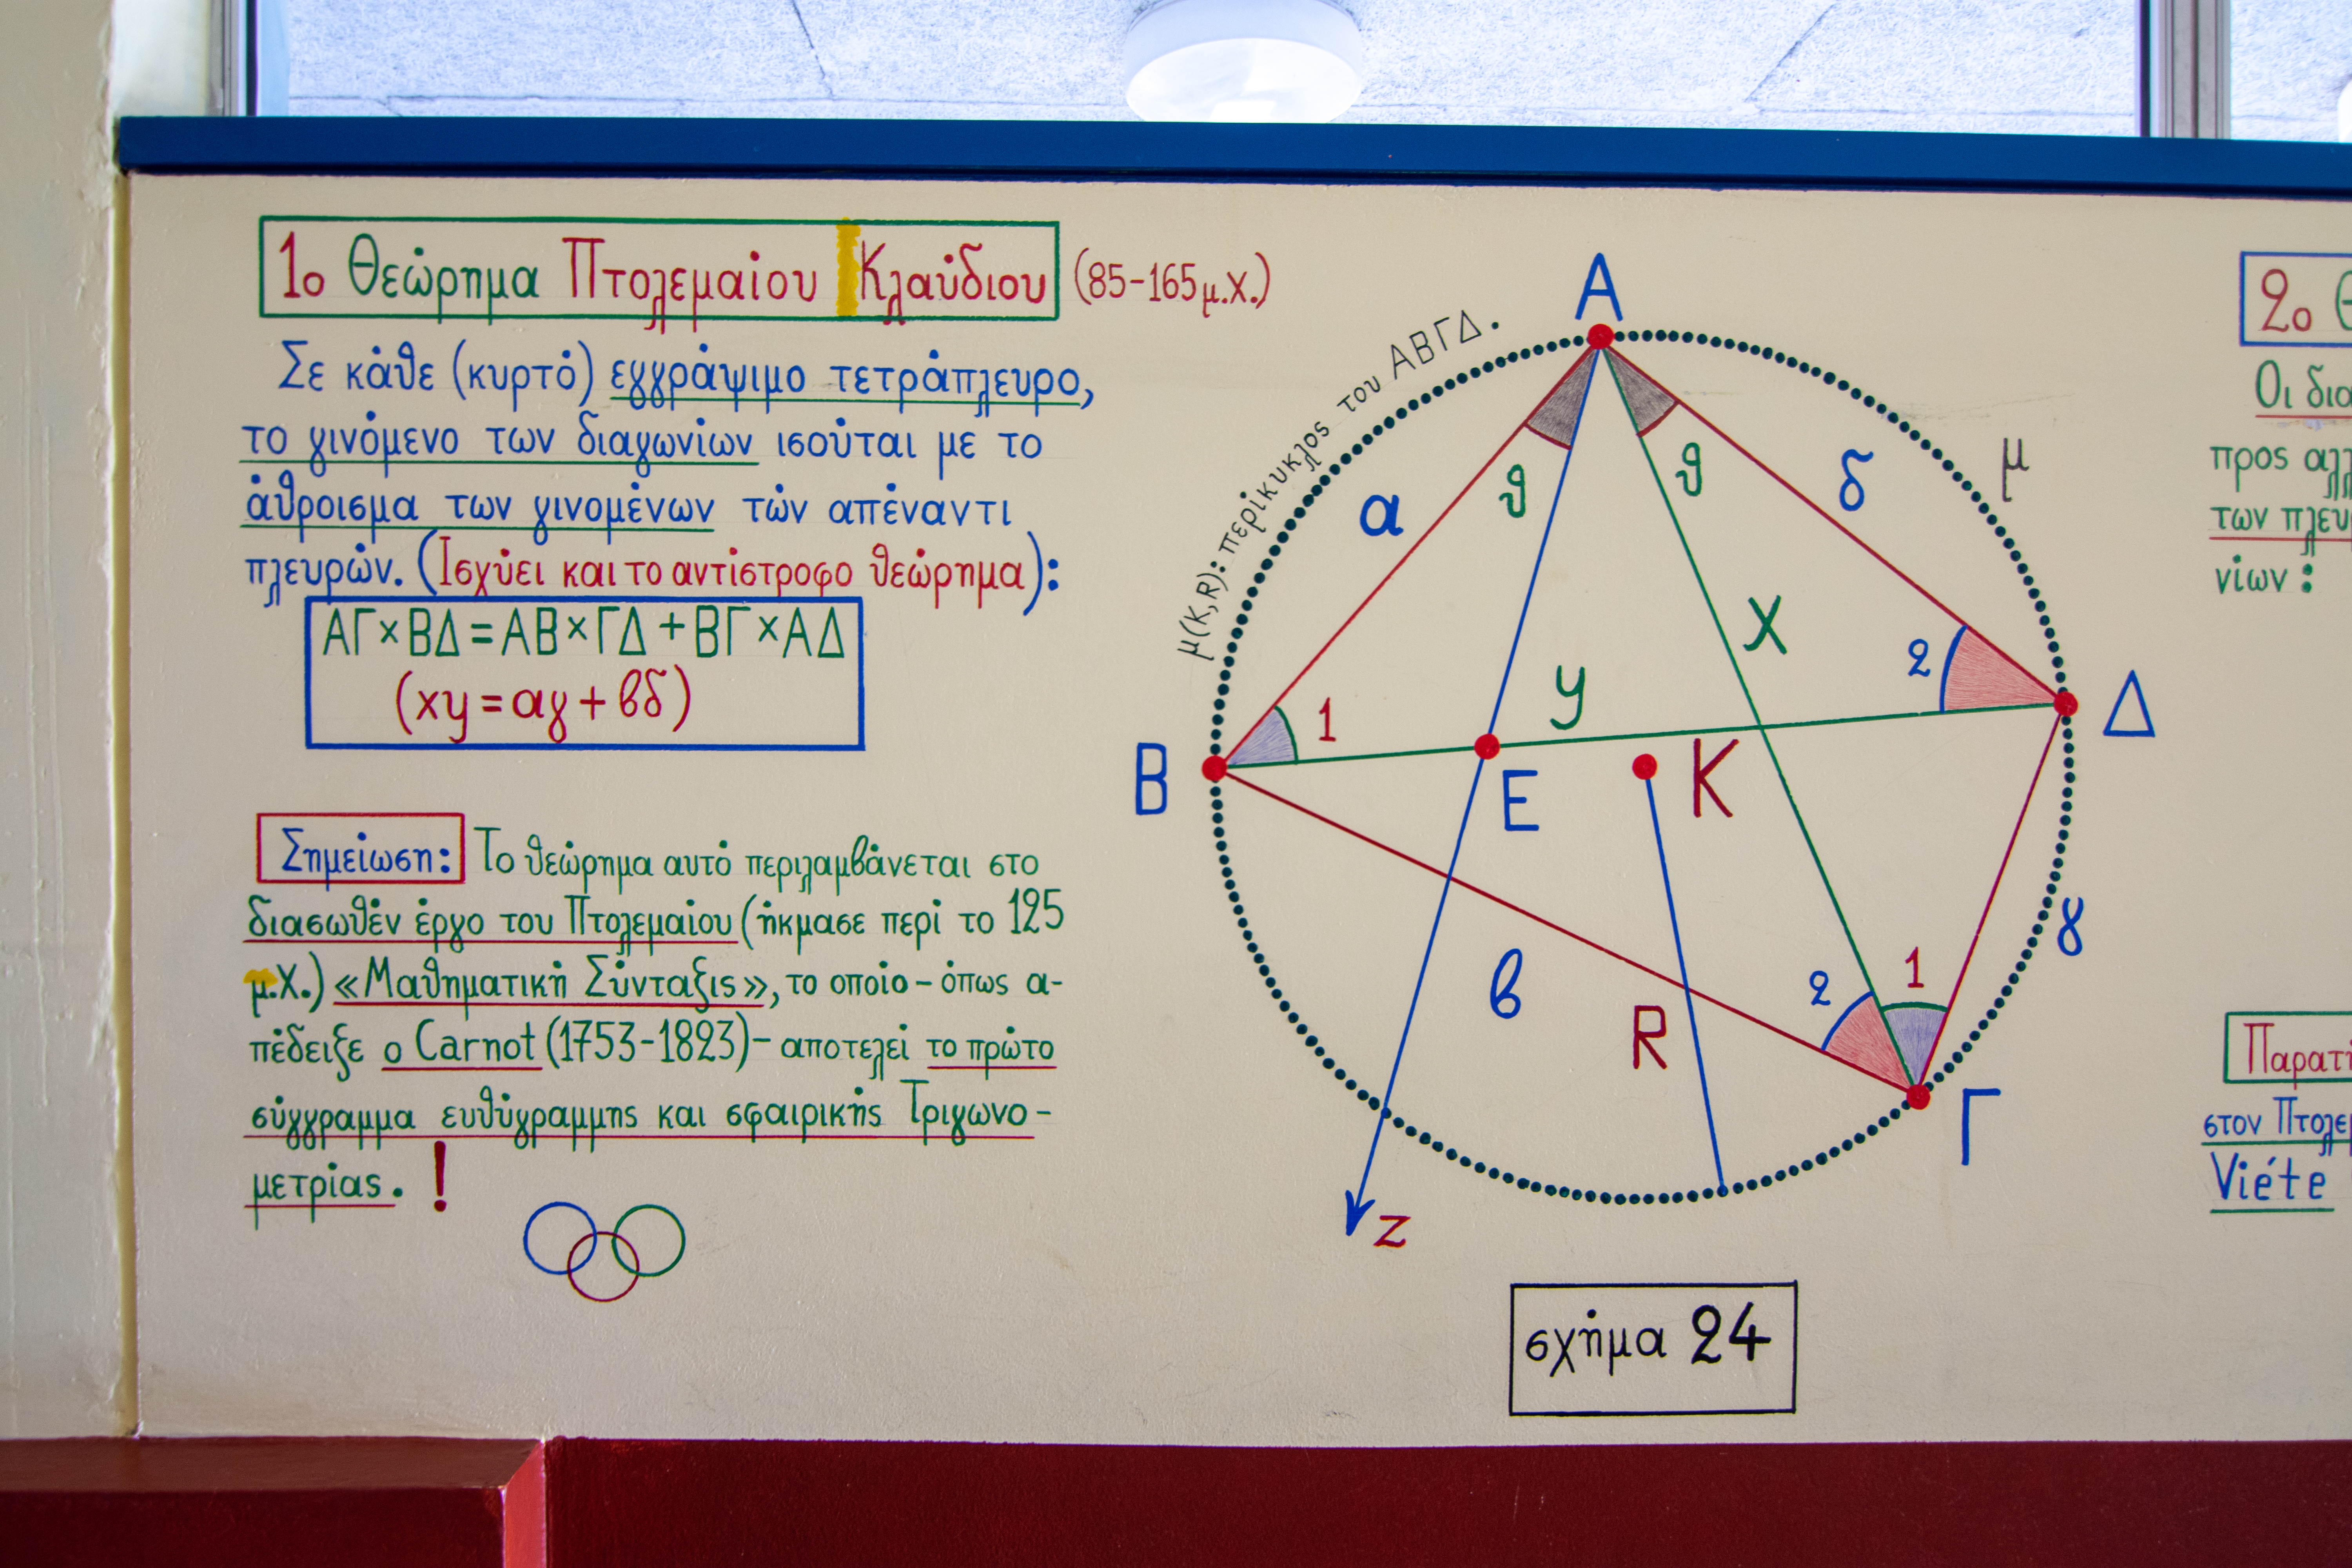 1ο Θεώρημα Πτολεμαίου Κλαύδιου (85-165 μ.Χ.)
Σε κάθε (κυρτό) εγγράψιμο τετράπλευρο,
το γινόμενο των διαγωνίων ισούται με το
άθροισμα των γινομένων τών απέναντι
πλευρών. (Ισχύει και το αντίστροφο θεώρημα):
ΑΓ×ΒΔ=ΑΒ×ΓΔ+ΒΓ×ΑΔ
(xy=αγ+βδ)
Σημείωση: Το θεώρημα αυτό περιλαμβάνεται στο
διασωθέν έργο του Πτολεμαίου (ήκμασε περί το 125
μ.Χ.) «Μαθηματική Σύνταξις», το οποίο - όπως α-
πέδειξε ο Carnot (1753-1823) - αποτελεί το πρώτο
σύγγραμμα ευθύγραμμης και σφαιρικής Τριγωνο-
μετρίας. !
μ(Κ,R): περίκυκλος του ΑΒΓΔ.
Α
α
θ
θ
δ
μ
x
2
y
1
Δ
Β
Ε
Κ
γ
β
R
2
1
Γ
z
σχήμα 24
2ο
Οι
προς
των
νίων:
στον
Viéte